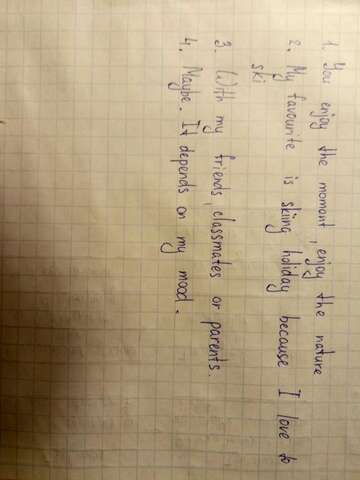 1. You enjoy the moment, enjoy the nature
2. My favourite is skiing holiday because I love to
ski
3. With my friends, classmates or parents.
4. Maybe. It depends on my mood.